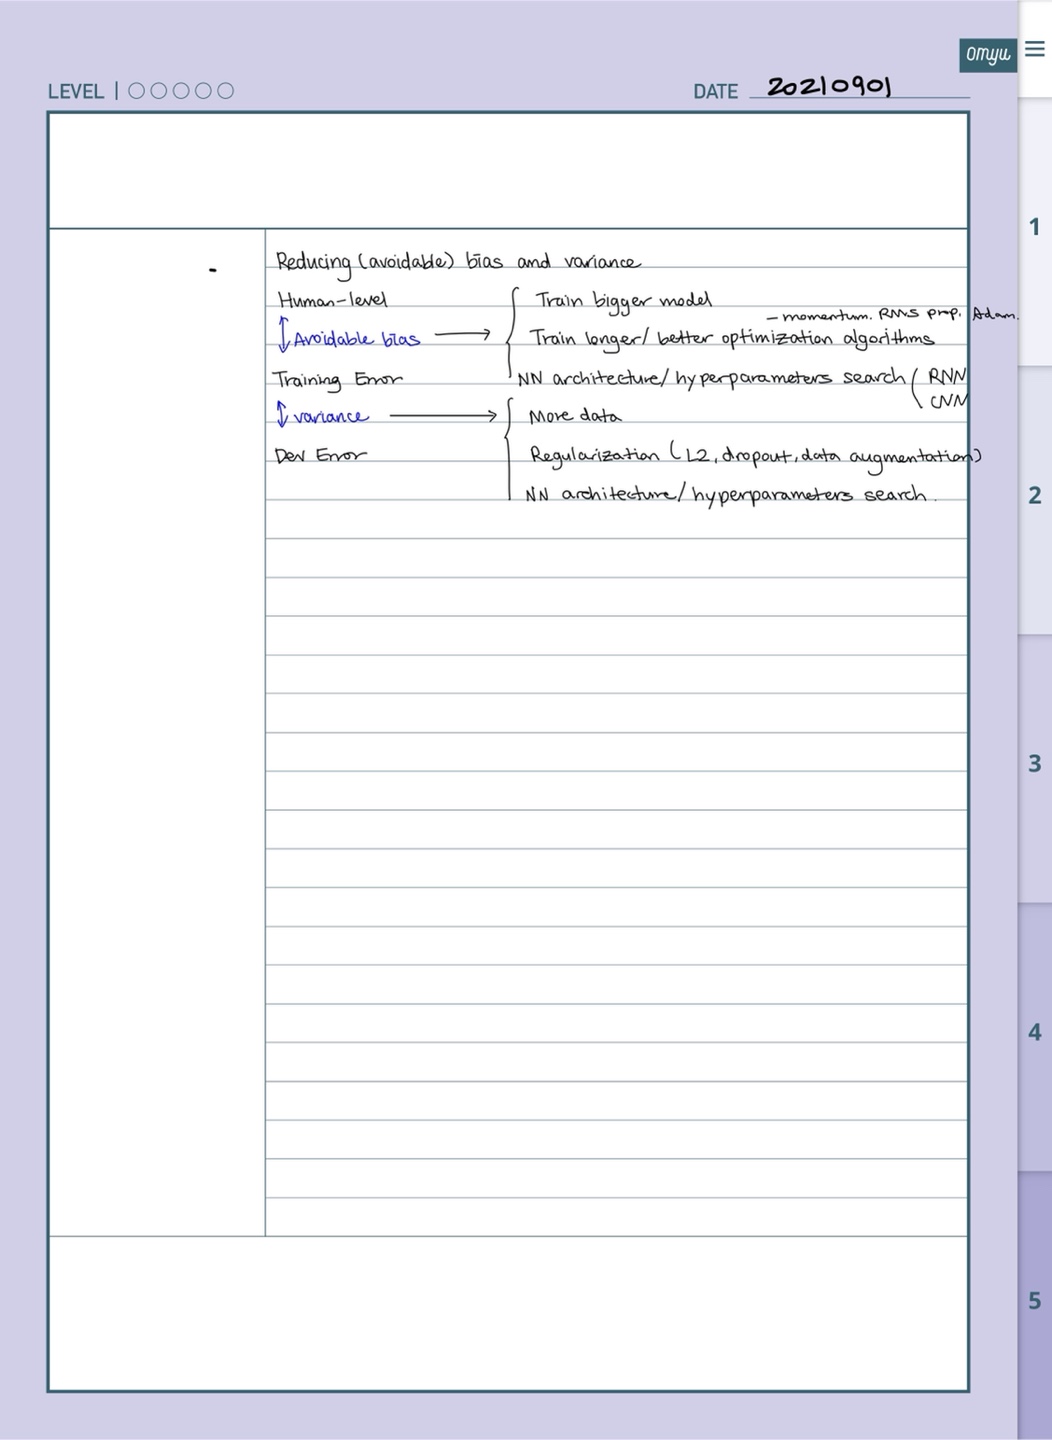 omyu
LEVEL
DATE 20210901
1
Reducing (avoidable) bias and variance
Human-level
Train bigger model
- momentum. RMS prop. Adam.
Avoidable bias
Train longer/ better optimization algorithms
Training Error
NN architecture/ hyperparameters search ( RNN
CNN
variance
More data
Dev Error
Regularization ( L2, dropout, data augmentation)
NN architecture/ hyperparameters search.
2
3
4
5